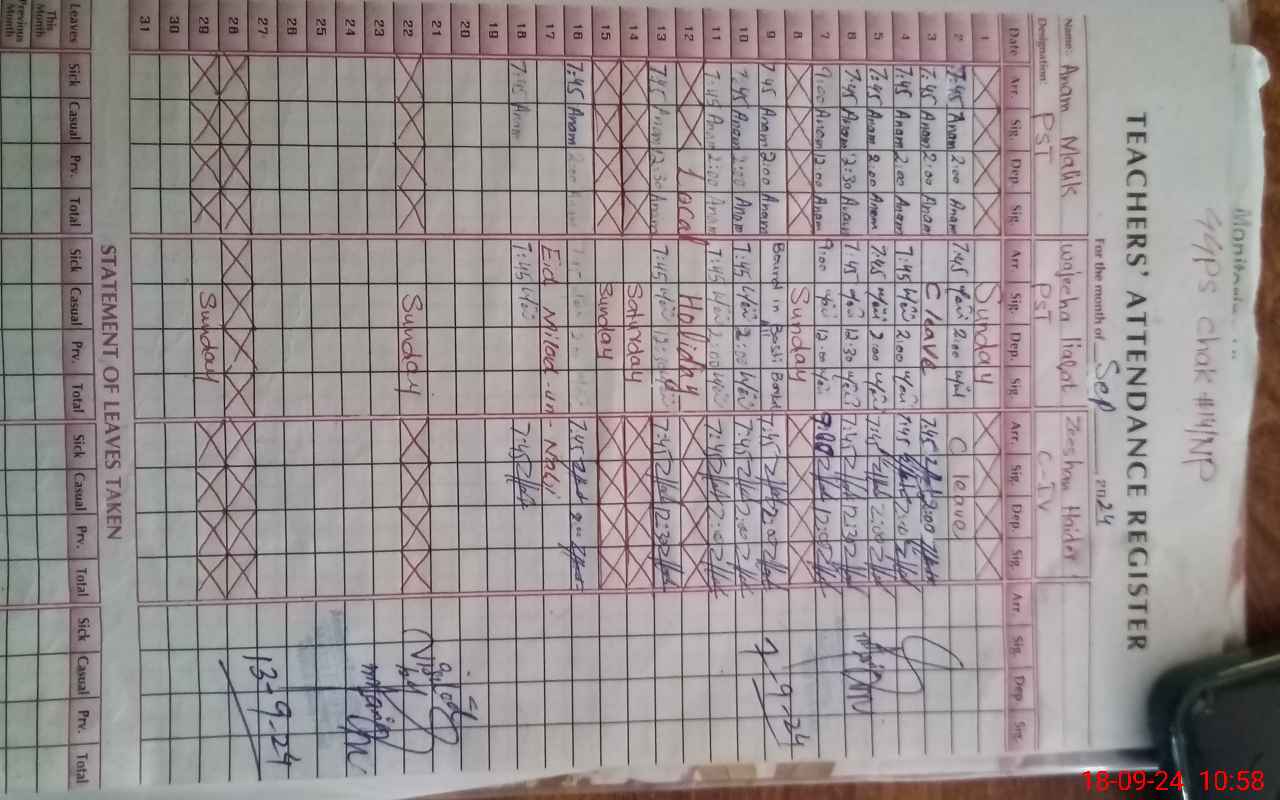 GGPS Chak #14/NP
TEACHERS' ATTENDANCE REGISTER
For the month of Sep 2024
Name: Anam Malik Waleeha liaqat Zeeshan Haider
Designation: PST PST C-IV
Date Arr. Sig. Dep. Sig. Arr. Sig. Dep. Sig. Arr. Sig. Dep. Sig. Arr. Sig. Dep. Sig.
1 Sunday
2 7:45 Anam 2:00 Anam 7:45 2:00 C leave
3 7:45 Anam 2:00 Anam C leave 7:45 2:00
4 7:45 Anam 2:00 Anam 7:45 2:00 7:45 2:00
5 7:45 Anam 2:00 Anam 7:45 2:00 7:45 2:00
6 7:45 Anam 12:30 Anam 7:45 12:30 7:45 12:30
7 9:00 Anam 12:00 Anam 9:00 12:00 9:00 12:00
8 Sunday
9 7:45 Anam 2:00 Anam Board in 7:45 2:00 7-9-24
10 7:45 Anam 2:00 Anam 7:45 2:00 7:45 2:00
11 7:45 Anam 2:00 Anam 7:45 2:00 7:45 2:00
12 Local Holiday
13 7:45 Anam 12:30 Anam 7:45 12:30 7:45 12:30
14 Saturday
15 Sunday
16 7:45 Anam 2:00 Anam 7:45 2:00
17 Eid Milad-un-Nabi
18 7:45 Anam 7:45 7:45
19
20
21
22 Sunday
23
24
25
26
27 13-9-24
28
29 Sunday
30
31
STATEMENT OF LEAVES TAKEN
Leaves Sick Casual Prv. Total Sick Casual Prv. Total Sick Casual Prv. Total Sick Casual Prv. Total
This Month
Previous Month
18-09-24 10:58